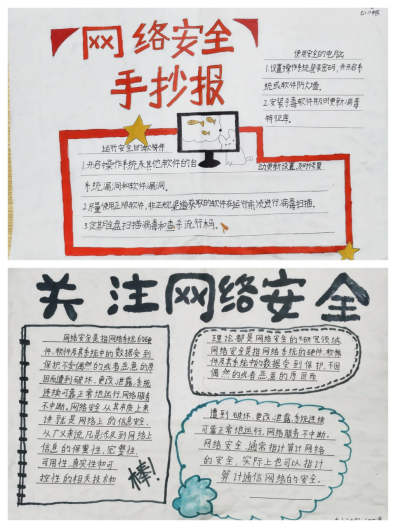 网络安全
手抄报
使用安全的电脑
1.设置操作系统登录密码,并开启系
统或软件防火墙。
2.安装杀毒软件并及时更新病毒
特征库。
运行安全的软件
1.开启操作系统及其他软件的自动更新设置,及时修复
系统漏洞和软件漏洞。
2.尽量使用正版软件,非正规渠道获取的软件在运行前须进行病毒扫描。
3.定期全盘扫描病毒
关注网络安全
网络安全是指网络系统的硬
件、软件及其系统中的数据受到
保护,不会偶然的或者恶意的原
因而遭到破坏、更改、泄露,系统
连续可靠正常地运行,网络服务
不中断。网络安全从其本质上来
讲就是网络上的信息安全。
从广义来说,凡是涉及到网络上
信息的保密性、完整性、
可用性、真实性和可
控性的相关技术和
棒!
理论都是网络安全的研究领域
网络安全是指网络系统的硬件、软件
及其系统中的数据受到保护,不因
偶然的或者恶意的原因而
遭到破坏、更改、泄露,系统连续
可靠正常地运行,网络服务不中断。
网络安全,通常指计算计网络
的安全,实际上也可以指计
算计通信网络的安全。